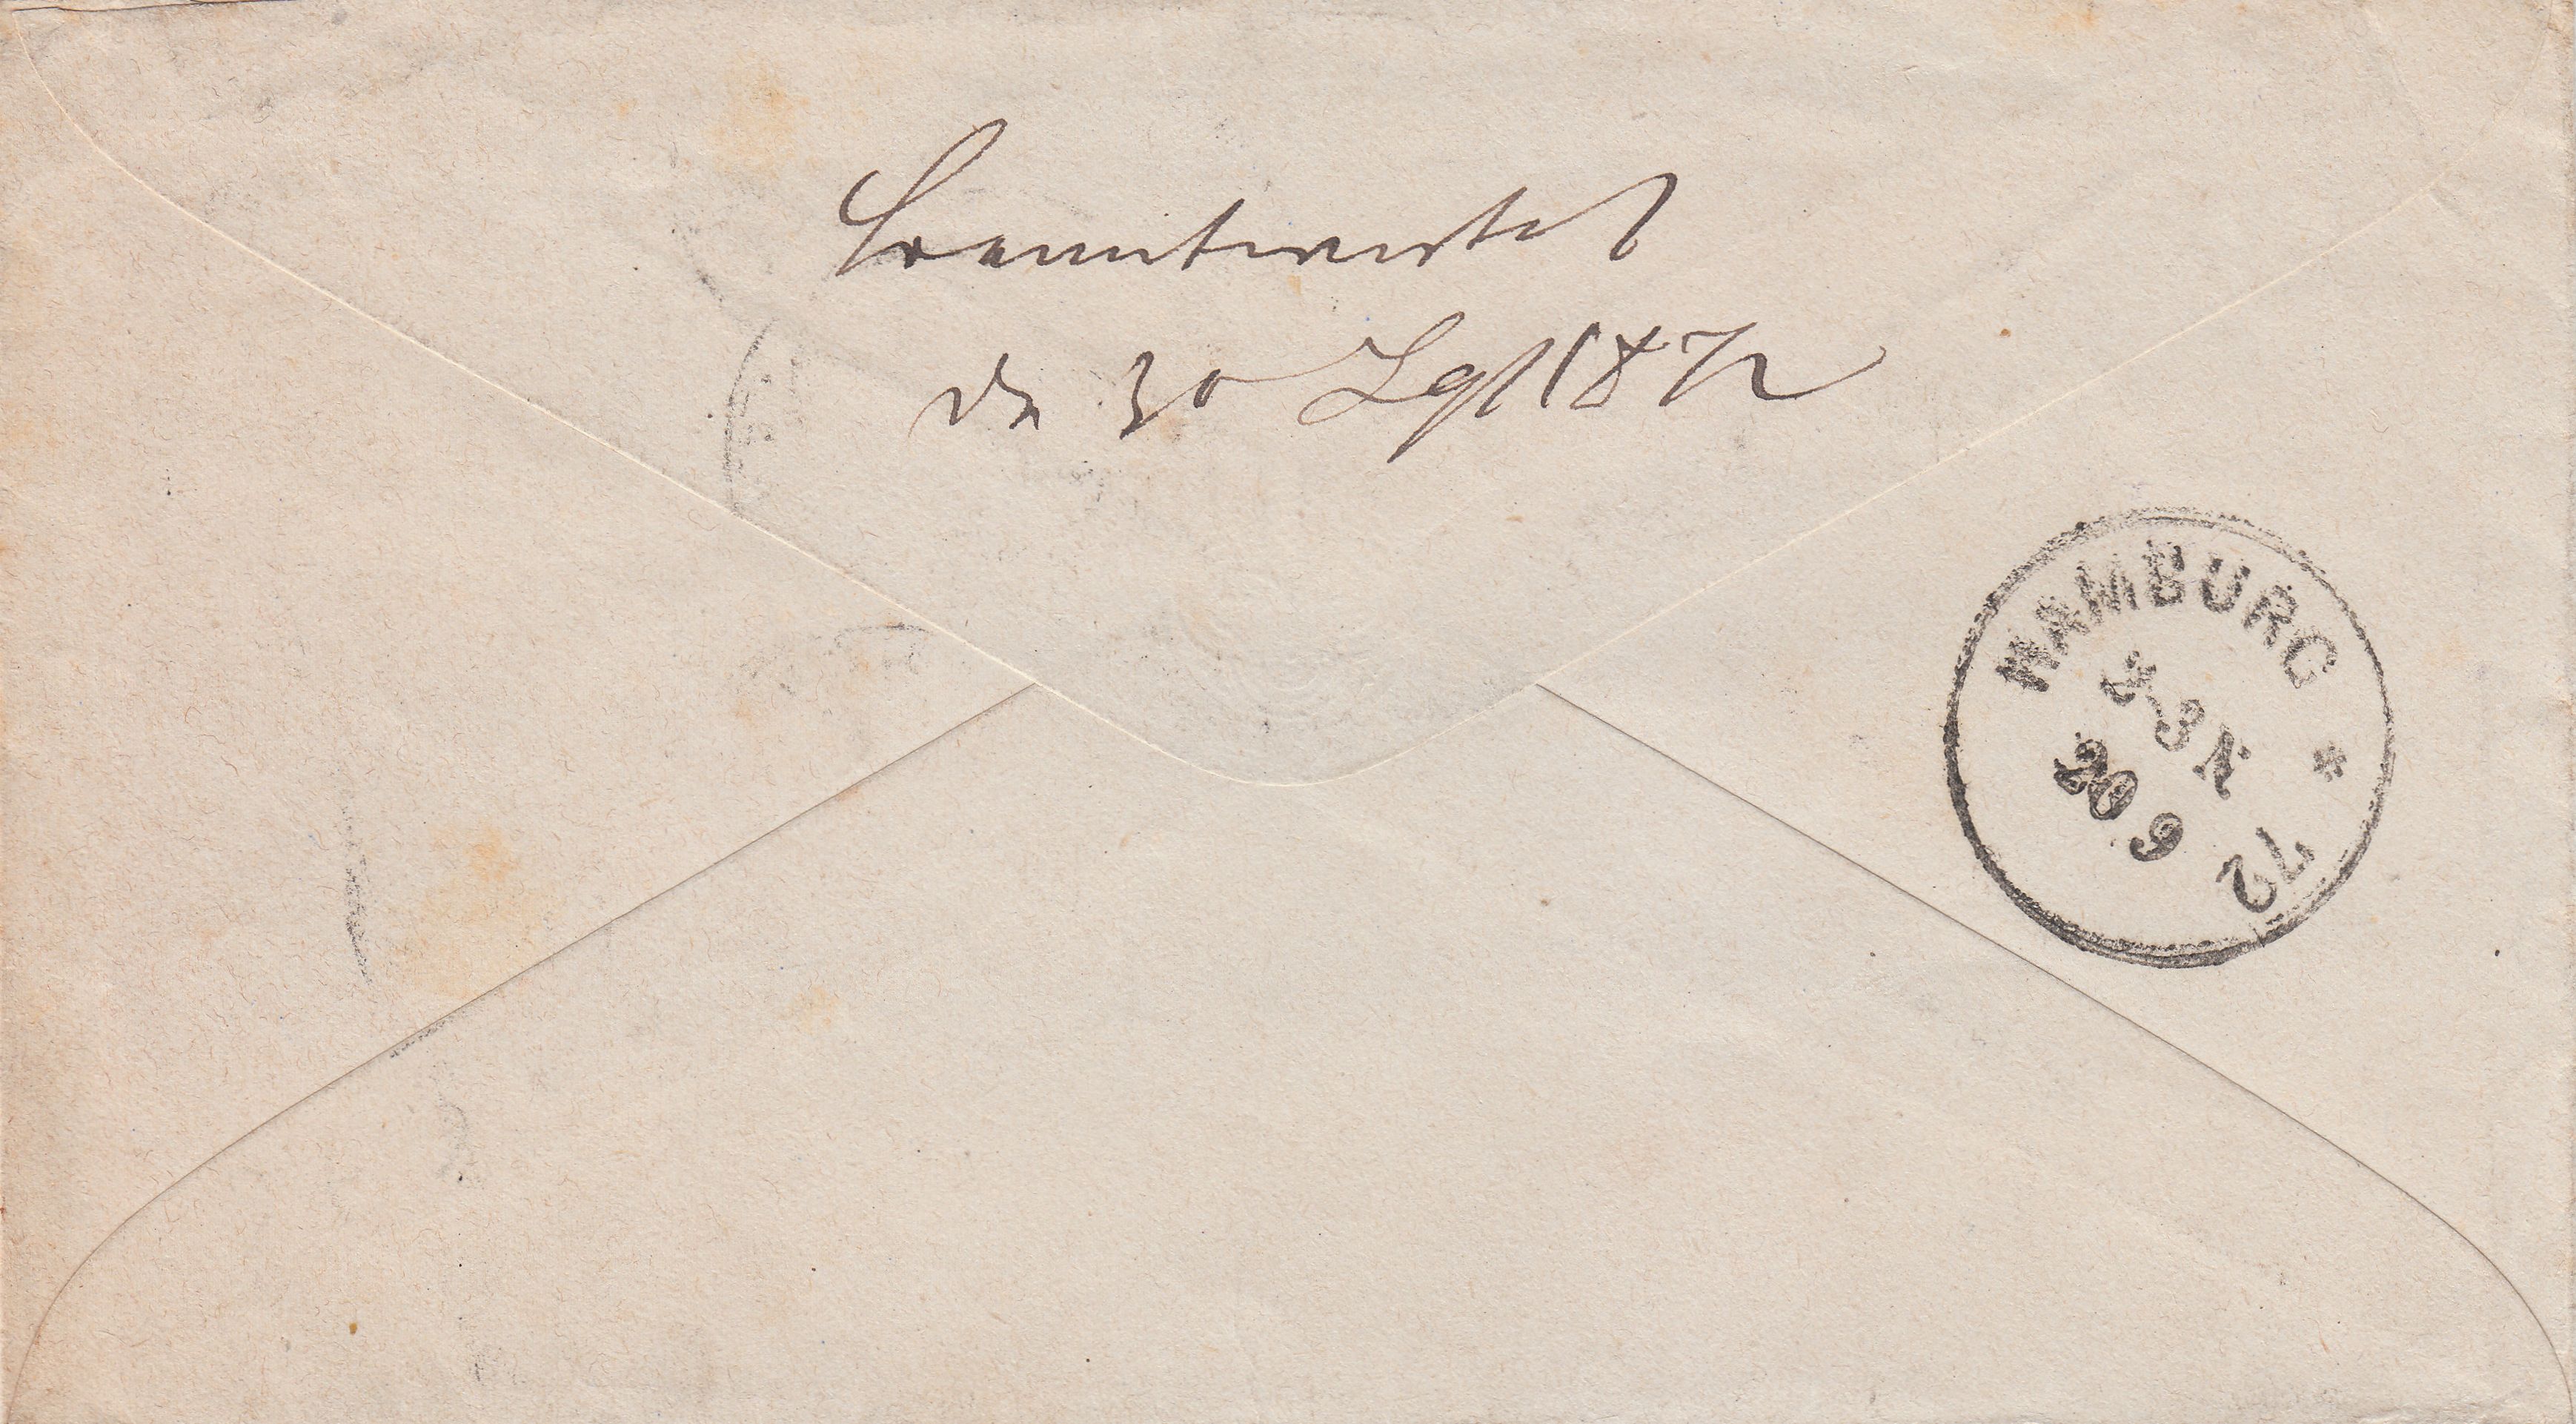 beantwortet
den 30 Sept 1872
HAMBURG * 72
2-3 N
20 9